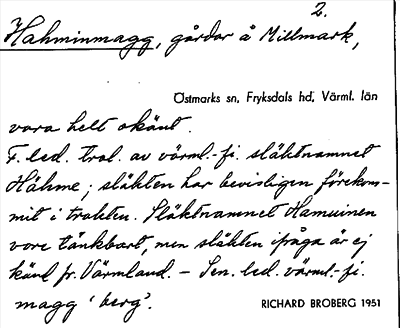 2.
Hahminmagg, gårdar å Millmark,
Östmarks sn, Fryksdals hd, Värml. län
vara helt okänt.
F. led. trol. av värml.-fi. släktnamnet
Hähme; släkten har bevisligen förekom-
mit i trakten. Släktnamnet Hamuinen
vore tänkbart, men släkten ifråga är ej
känd fr. Värmland. – Sen. led. värml.-fi.
magg 'berg'.
RICHARD BROBERG 1951